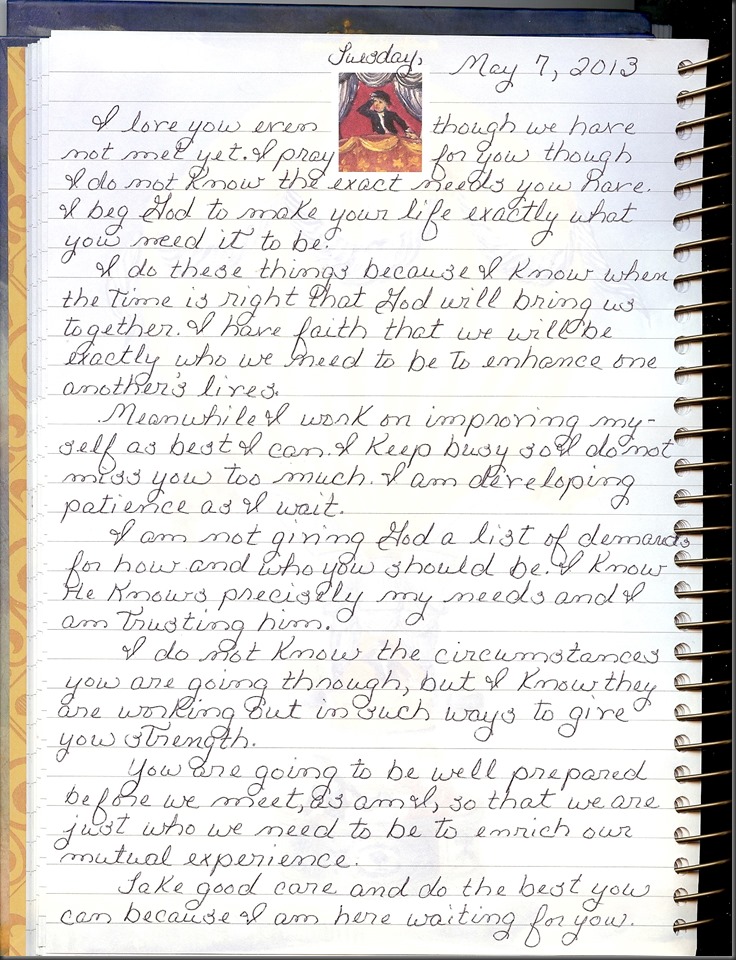 Tuesday, May 7, 2013
I love you even though we have
not met yet. I pray for you though
I do not know the exact needs you have.
I beg God to make your life exactly what
you need it to be.
I do these things because I know when
the time is right that God will bring us
together. I have faith that we will be
exactly who we need to be to enhance one
another's lives.
Meanwhile I work on improving my-
self as best I can. I keep busy so I do not
miss you too much. I am developing
patience as I wait.
I am not giving God a list of demands
for how and who you should be. I know
He knows precisely my needs and I
am trusting him.
I do not know the circumstances
you are going through, but I know they
are working out in such ways to give
you strength.
You are going to be well prepared
before we meet, as am I, so that we are
just who we need to be to enrich our
mutual experience.
Take good care and do the best you
can because I am here waiting for you.